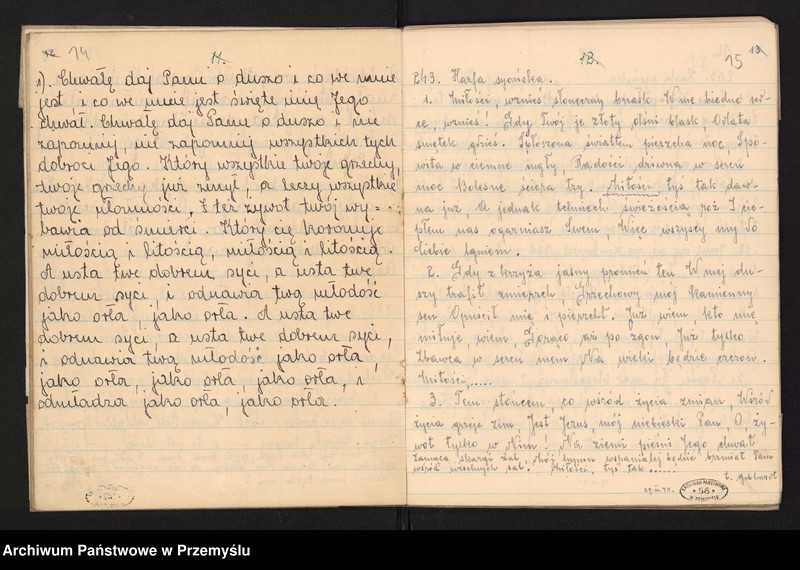 14
11.
1). Chwałę daj Panu o duszo i co we mnie
jest, i co we mnie jest święte imię Jego
chwal. Chwałę daj Panu o duszo i nie
zapomnij, nie zapomnij wszystkich tych
dobroci Jego. Który wszystkie twoje grzechy,
twoje grzechy już zmył, a leczy wszystkie
twoje ułomności, I też żywot twój wy=
bawia od śmierci. Który cię koronuje
miłością i litością, miłością i litością.
A usta twe dobrem syci, a usta twe
dobrem syci, i odnawia twą młodość
jako orła, jako orła. A usta twe
dobrem syci, a usta twe dobrem syci,
i odnawia twą młodość jako orła,
jako orła, jako orła, jako orła, i
odmładza jako orła, jako orła.
12.
15
13
243. Harfa syońska.
1. Miłości, wznieś słoneczny brzask W me biedne ser-
ce, wznieś! Gdy Twój je złoty olśni blask, Odlata
smętek gdzieś. Spłoszona światłem pierzcha noc Spo-
wita w ciemne mgły, Radości dziwna w sercu
moc Bolesne ściera łzy. Miłości, tyś tak daw-
na już, A jednak tchniesz świeżością róż I cie-
płem nas ogarniasz Swem, Więc wszyscy my do
Ciebie lgniem.
2. Gdy z krzyża jasny promień ten W mej du-
szy trafił zmierzch, Grzechowy mój kamienny
sen Opuścił mię i pierzchł. Już wiem, kto mnie
miłuje wiem, Gorąco aż po zgon, Już tylko
Zbawca w sercu mem Na wieki będzie czczon.
Miłości,.....
3. Tem słońcem, co wśród życia zmian Wśród
życia grzeje zim, Jest Jezus, mój niebieski Pan, O ży-
wot tylko w Nim! Na ziemi pieśni Jego chwał
Zamąca skargi żal, Mój hymn wspanialej będzie brzmiał Tam
wśród wiecznych sal! Miłości, tyś tak......
E. Gebhardt
ARCHIWUM PAŃSTWOWE
56
W PRZEMYŚLU
Archiwum Państwowe w Przemyślu